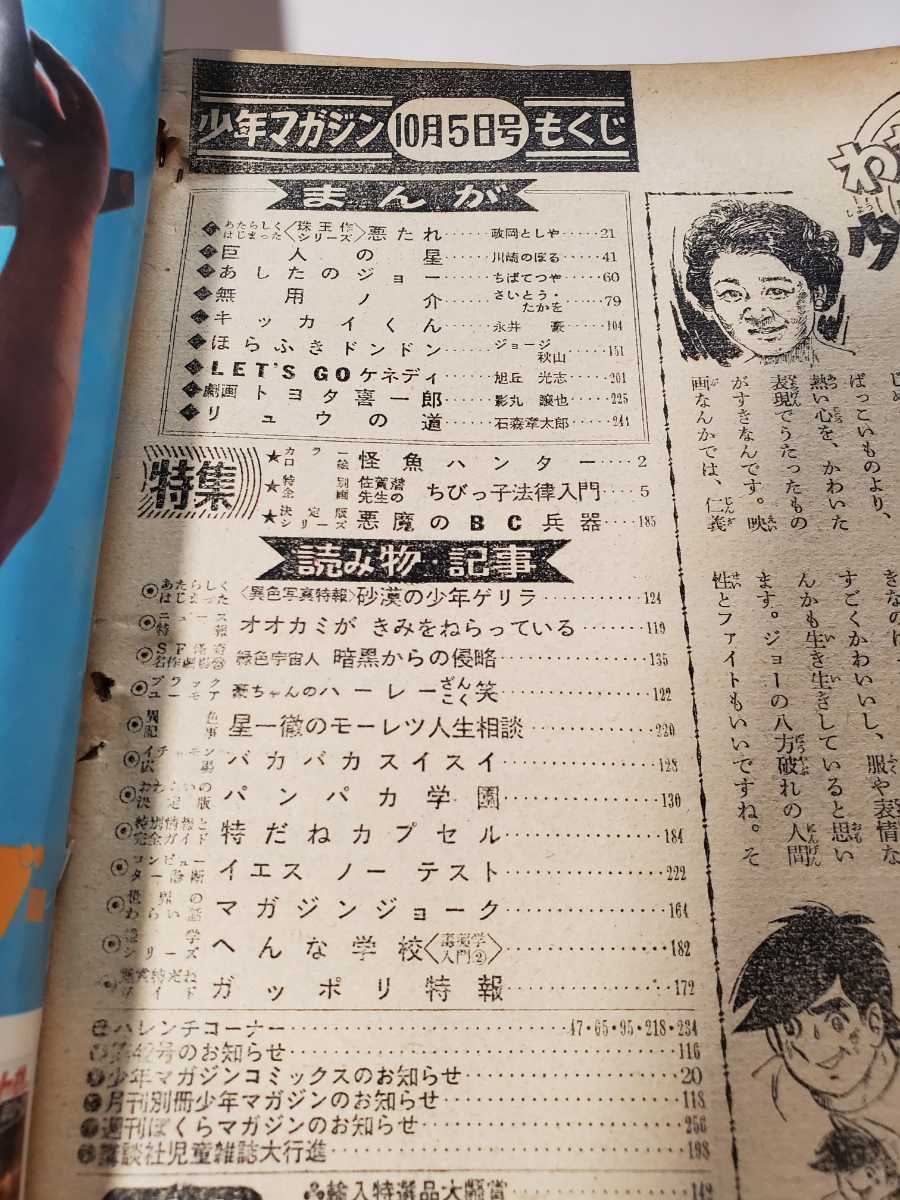 少年マガジン 10月5日号 もくじ
まんが
あたらしくはじまった〈珠玉作シリーズ〉悪たれ……政岡としや……21
巨人の星……川崎のぼる……41
あしたのジョー……ちばてつや……60
無用ノ介……さいとう・たかを……79
キッカイくん……永井豪……104
ほらふきドンドン……ジョージ秋山……151
LET'S GO ケネディ……旭丘光志……201
劇画 トヨタ喜一郎……影丸譲也……225
リュウの道……石森章太郎……241
特集
★カラー口絵 怪魚ハンター……2
★特別企画 佐賀潜先生の ちびっ子法律入門……5
★決定版シリーズ 悪魔のBC兵器……185
読み物・記事
あたらしくはじまった〈異色写真特報〉砂漠の少年ゲリラ……124
ニュース特報 オオカミが きみをねらっている……119
SF怪奇名作劇場 緑色宇宙人 暗黒からの侵略……135
ブラックユーモア 豪ちゃんのハーレーざんこく笑……122
異色記事 星一徹のモーレツ人生相談……220
イチャモン広場 バカバカスイスイ……128
おわらいの決定版 パンパカ学園……130
特別情報と完全ガイド 特だねカプセル……184
コンピューター診断 イエス ノー テスト……222
世界のわらい話 マガジンジョーク……164
シリーズ へんな学校〈毒薬学入門②〉……182
ガッポリ特報……172
ハレンチコーナー……47・65・95・218・234
第42号のお知らせ……116
少年マガジンコミックスのお知らせ……20
月刊別冊少年マガジンのお知らせ……118
週刊ぼくらマガジンのお知らせ……256
講談社児童雑誌大行進……198
輸入特選品大懸賞……142
ばっこいものより、
熱い心を、かわいた
表現でうたったもの
がすきなんです。映
画なんかでは、仁義
きなのは
すごくかわいいし、服や表情な
んかも生き生きしていると思い
ます。ジョーの八方破れの人間
性とファイトもいいですね。そ